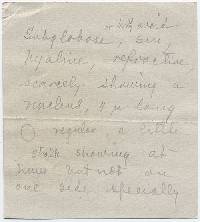 Subglobose,
hyaline, refractive,
scarcely showing a
nucleus, 4 µ long
regular, a little
stalk showing at
times but not on
one side specially